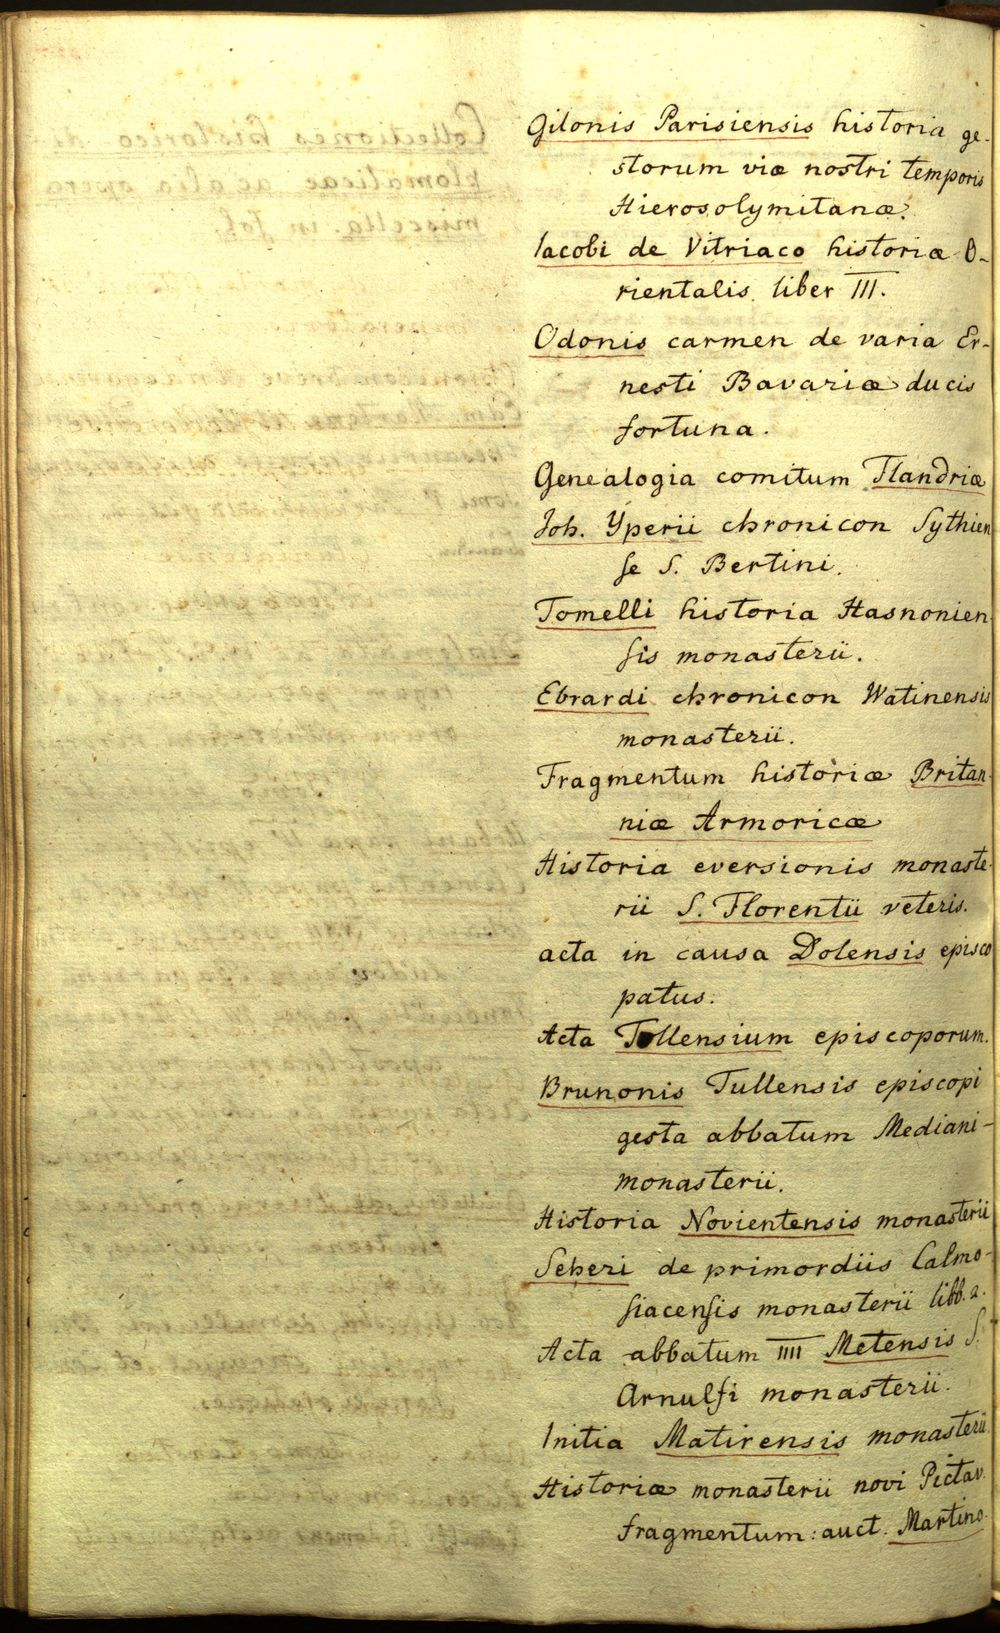 Gilonis Parisiensis historia ge-
storum viæ nostri temporis
Hierosolymitanæ.
Iacobi de Vitriaco historiæ O-
rientalis liber III.
Odonis carmen de varia Er-
nesti Bavariæ ducis
fortuna.
Genealogia comitum Flandriæ
Joh. Yperii chronicon Sythien
se S. Bertini.
Tomelli historia Hasnonien-
sis monasterii.
Ebrardi chronicon Watinensis
monasterii.
Fragmentum historiæ Britan-
niæ Armoricæ
Historia eversionis monaste-
rii S. Florentii veteris.
acta in causa Dolensis episco
patus.
Acta Tullensium episcoporum.
Brunonis Tullensis episcopi
gesta abbatum Mediani-
monasterii.
Historia Novientensis monasterii
Seheri de primordiis Calmo-
siacensis monasterii libb. 2.
Acta abbatum IIII Metensis S.
Arnulfi monasterii.
Initia Matirensis monasterii
Historiæ monasterii novi Pictav.
fragmentum: auct. Martino.